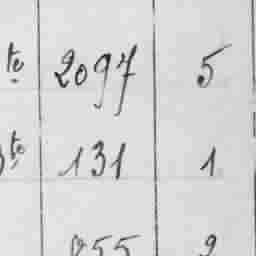 te 2097 5
to 131 1
255 2